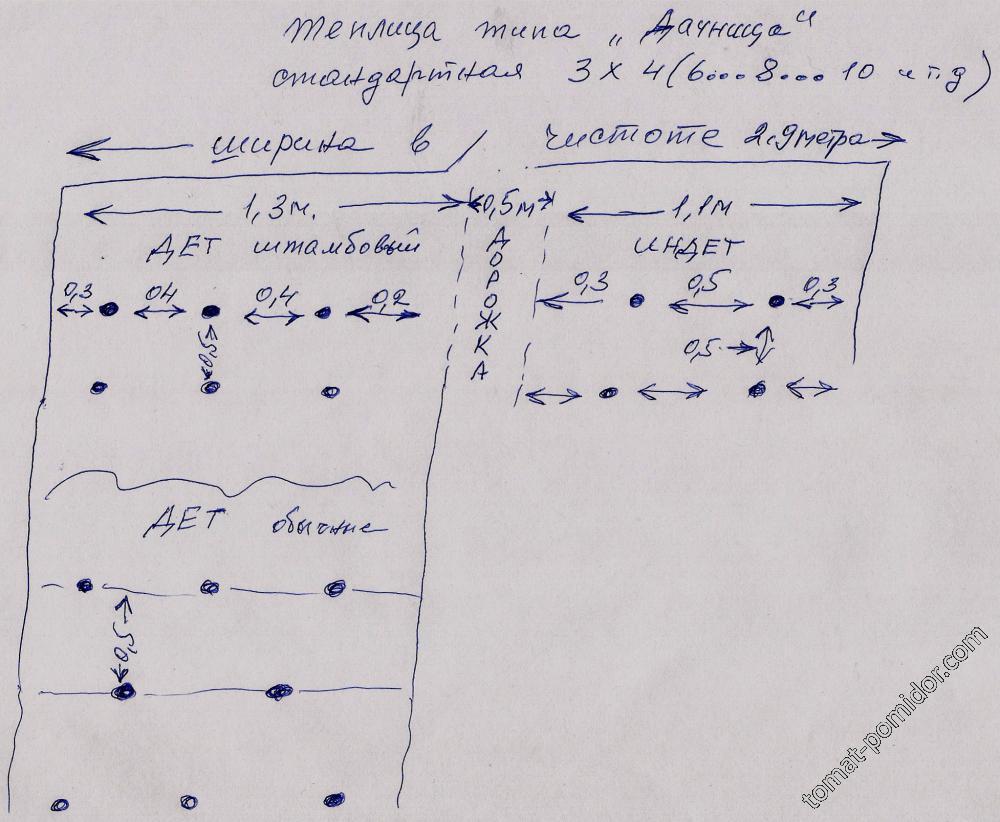 теплица типа „Дачница“
стандартная 3 х 4 (6...8...10 и т.д)
ширина в / чистоте 2.9 метра
1,3 м. 0,5 м 1,1 м
ДЕТ штамбовый ДОРОЖКА ИНДЕТ
0,3 04 0,4 0,2 0,3 0,5 0,3
0,5 0,5
ДЕТ обычные
0,5
tomat-pomidor.com